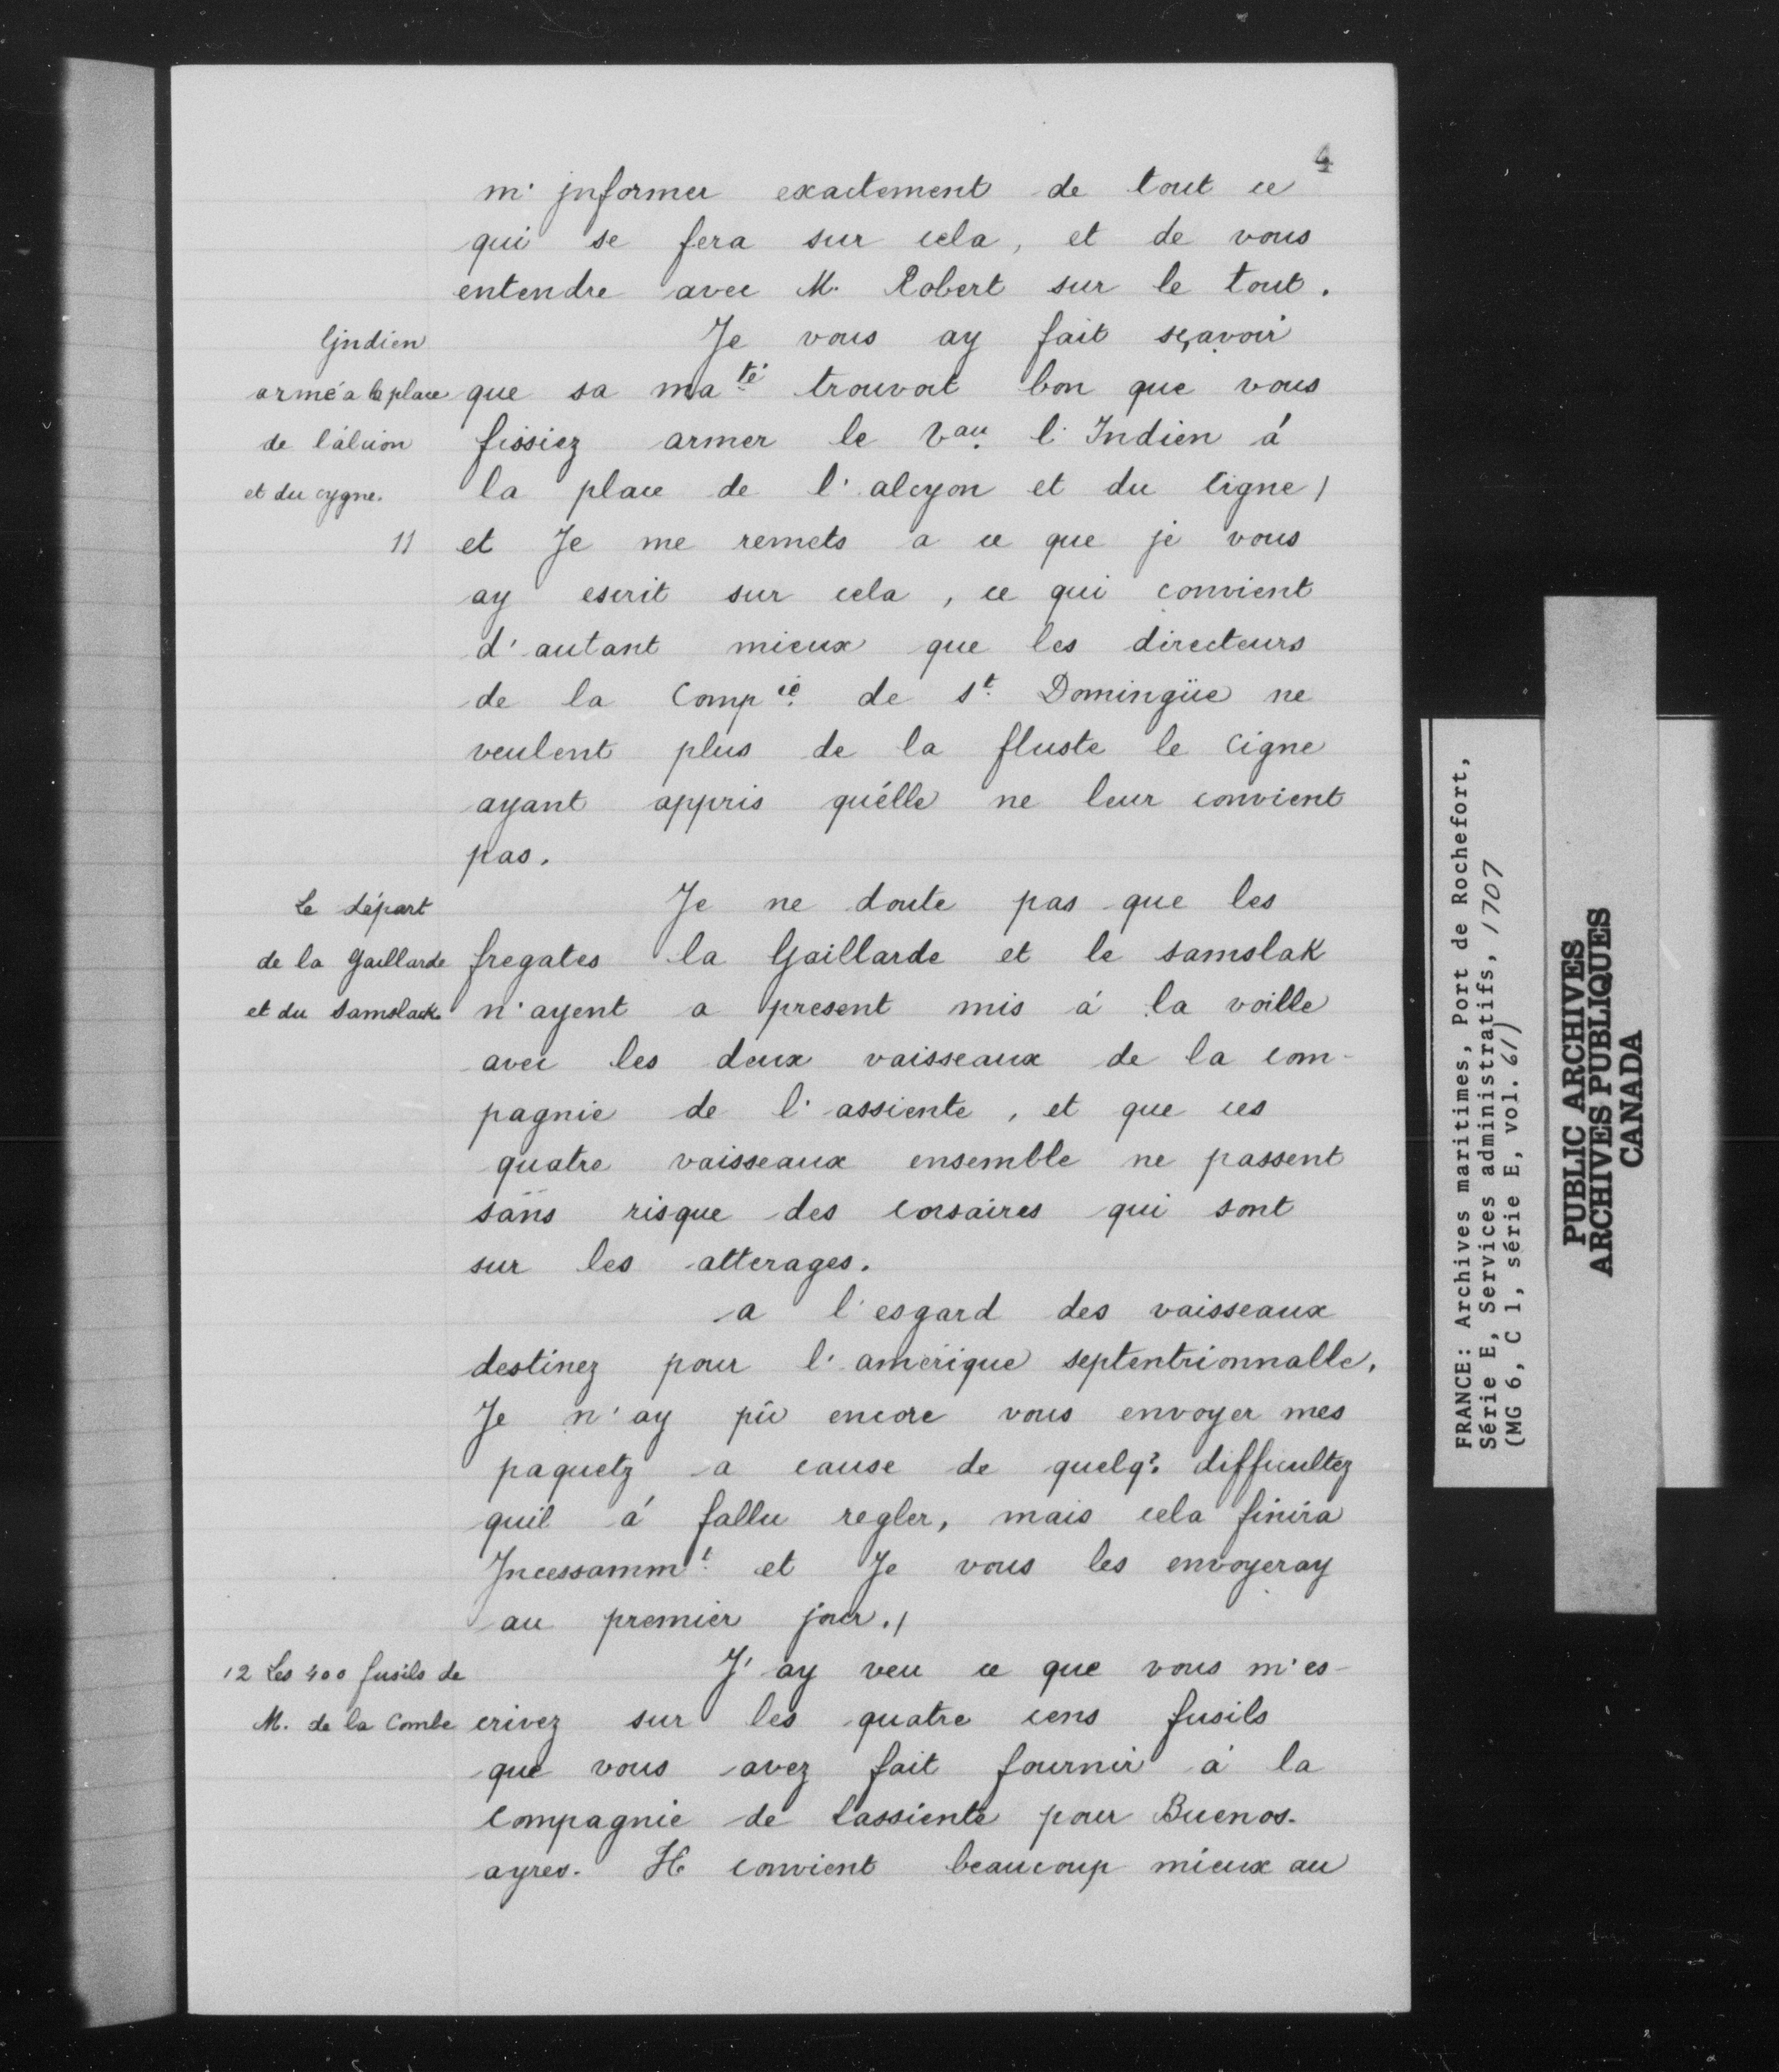 4
m' jnformer exactement de tout ce
qui se fera sur cela, et de vous
entendre avec M. Robert sur le tout.
Ljndien
armé a la place
de l'álcion
et du cygne.
11
Je vous ay fait sçavoir
que sa ma.té trouvoit bon que vous
fissiez armer le V.au l'Indien á
la place de l'alcyon et du Cigne/
et Je me remets a ce que je vous
ay escrit sur cela, ce qui convient
d'autant mieux que les directeurs
de la Comp.ie de s.t Domingüe ne
veulent plus de la fluste le Cigne
ayant appris qu'élle ne leur convient
pas.
Le départ
de la gaillarde
et du Samslack.
Je ne doute pas que les
fregates la Gaillarde et le samslak
n'ayent a present mis á la voille
avec les deux vaisseaux de la com-
pagnie de l'assiente, et que ces
quatre vaisseaux ensemble ne passent
sans risque des corsaires qui sont
sur les atterages.
a l'esgard des vaisseaux
destinez pour l'amérique septentrionnalle,
Je n'ay pû encore vous envoyer mes
paquetz a cause de quelq.s difficultez
quil á fallu regler, mais cela finira
Jncessamm.t et Je vous les envoyeray
au premier jour./
12 Les 400 fusils de
M. de la Combe
J'ay veu ce que vous m'es-
crivez sur les quatre cens fusils
que vous avez fait fournir á la
Compagnie de Lassiente pour Buenos-
ayres. Il convient beaucoup mieux au
FRANCE: Archives maritimes, Port de Rochefort,
Série E, Services administratifs, 1707
(MG 6, C 1, série E, vol. 61)
PUBLIC ARCHIVES
ARCHIVES PUBLIQUES
CANADA